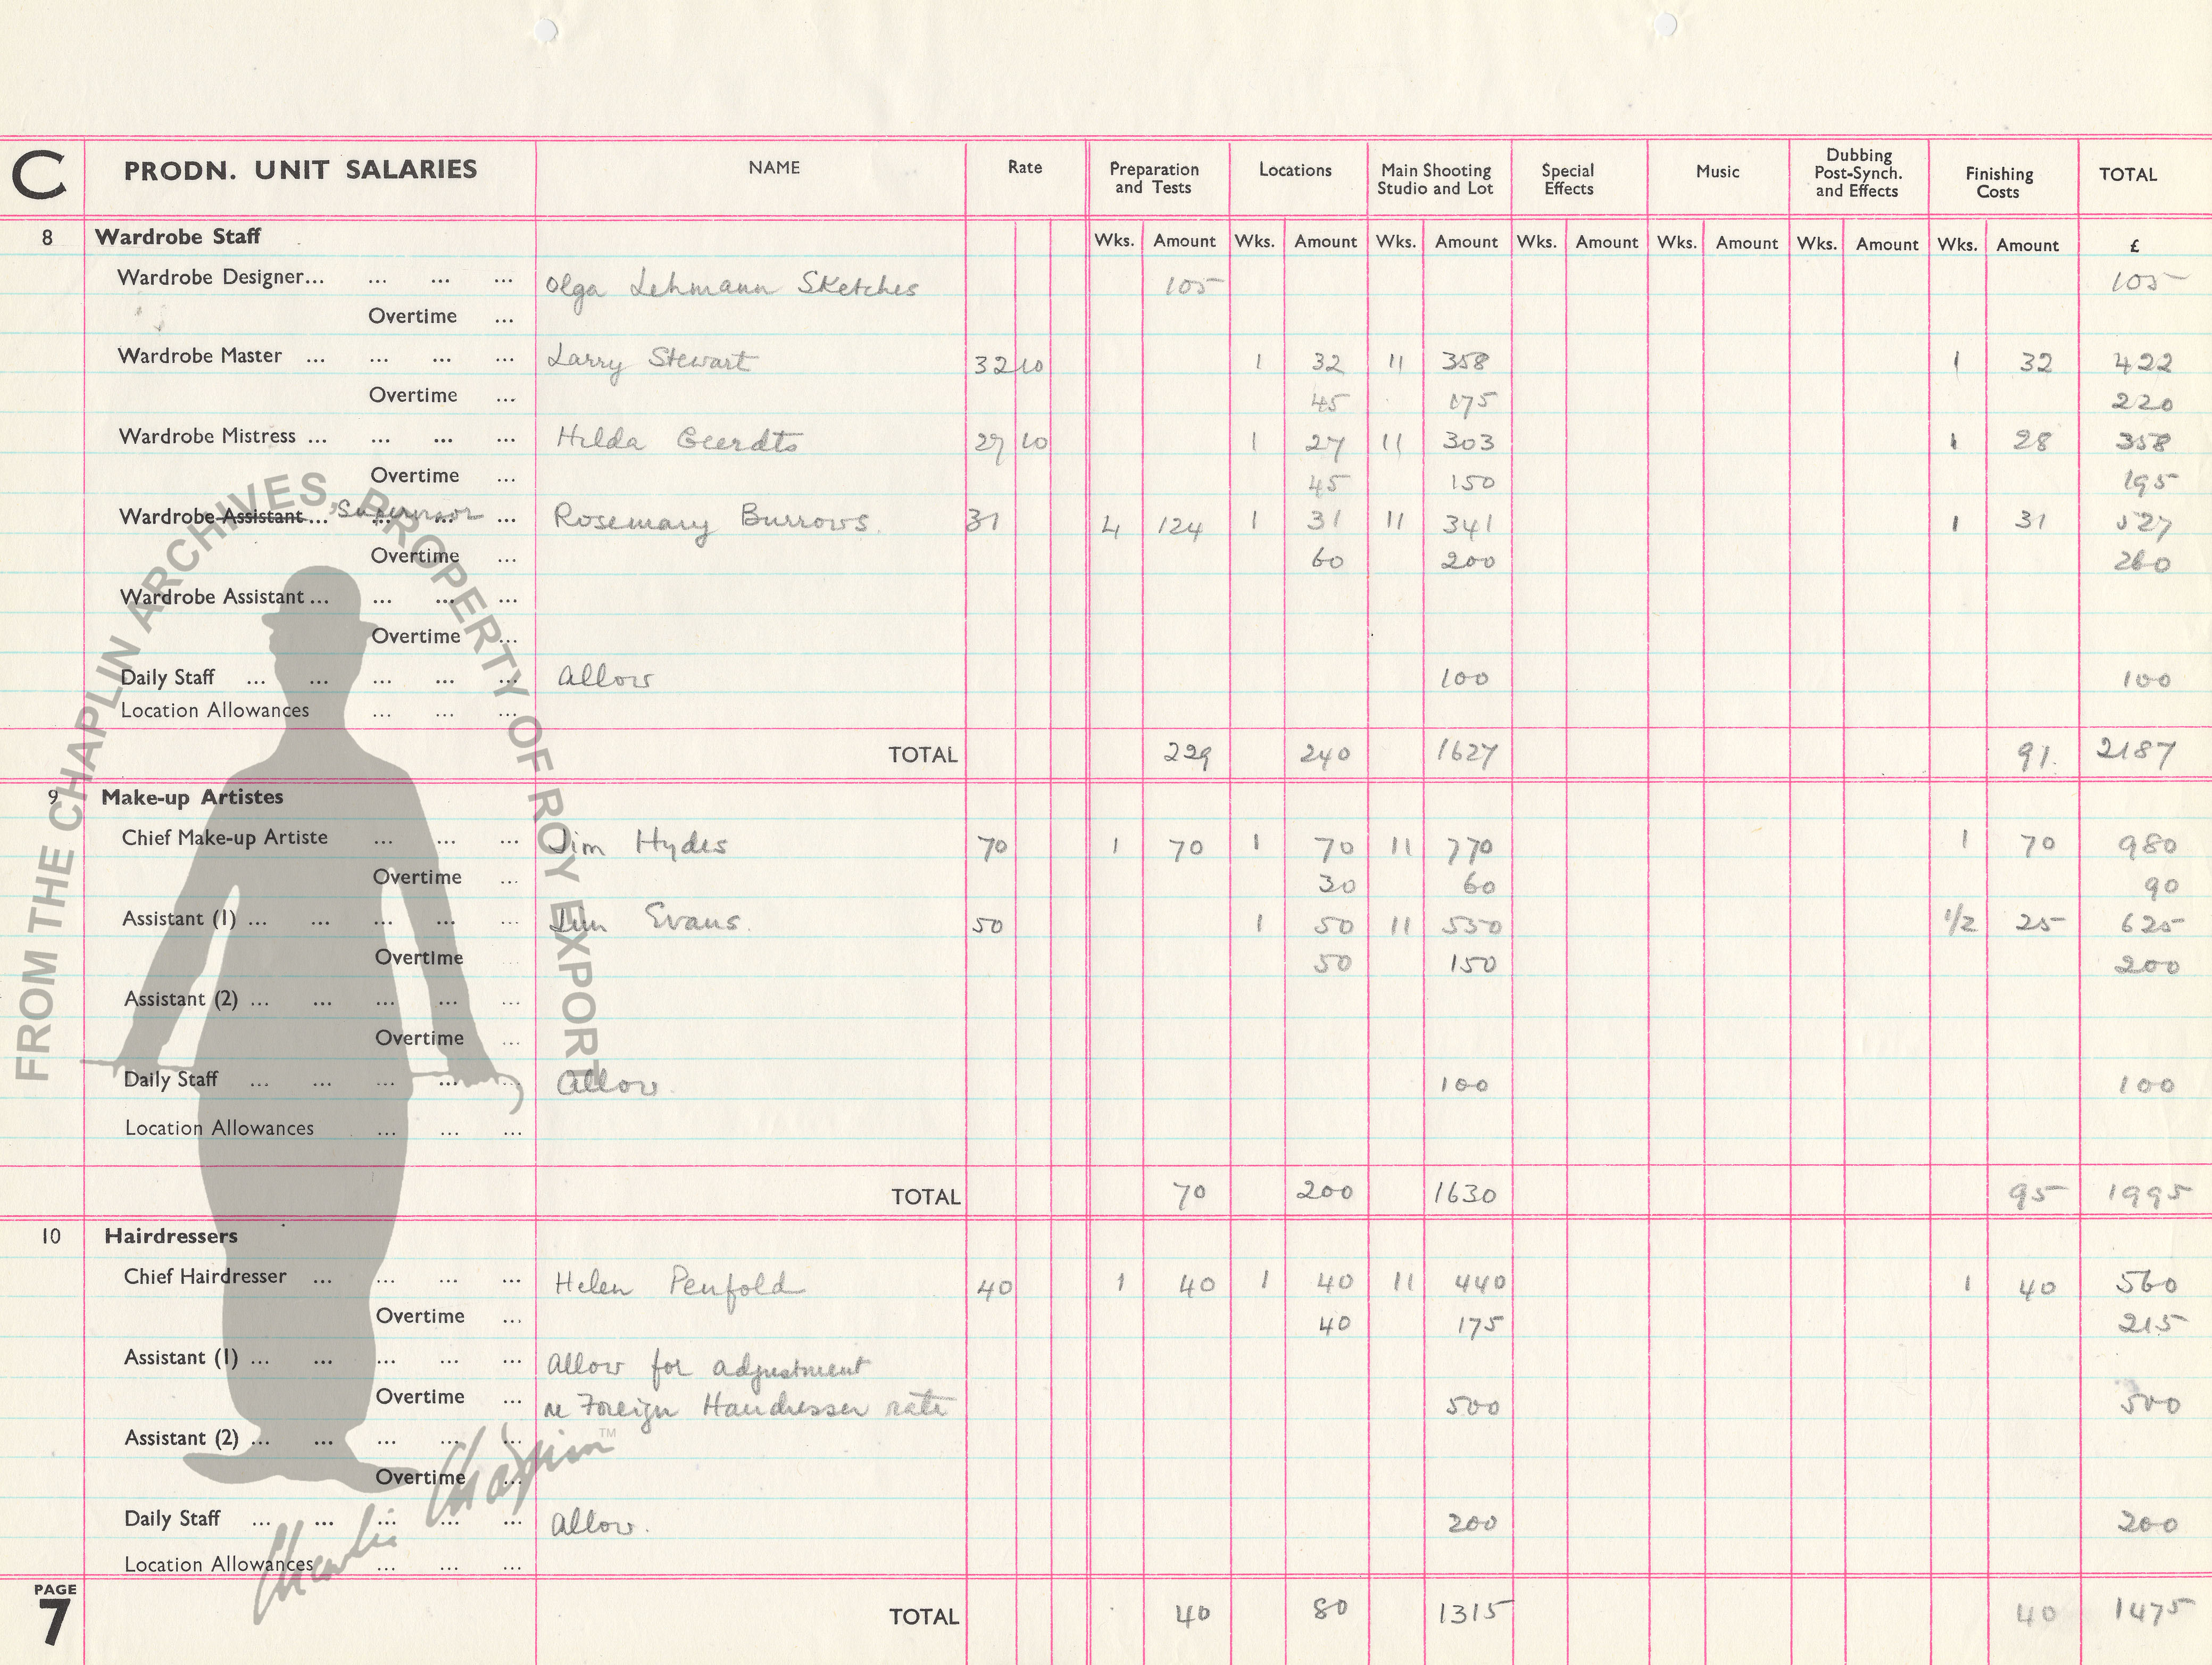 C PRODN. UNIT SALARIES NAME Rate Preparation and Tests Locations Main Shooting Studio and Lot Special Effects Music Dubbing Post-Synch. and Effects Finishing Costs TOTAL
8 Wardrobe Staff Wks. Amount Wks. Amount Wks. Amount Wks. Amount Wks. Amount Wks. Amount Wks. Amount £
Wardrobe Designer... ... ... ... Olga Lehmann Sketches 105 105
Overtime ...
Wardrobe Master ... ... ... ... Larry Stewart 32 10 1 32 11 358 1 32 422
Overtime ... 45 175 220
Wardrobe Mistress ... ... ... ... Hilda Geerdts 27 10 1 27 11 303 1 28 358
Overtime ... 45 150 195
Wardrobe Assistant... Supervisor ... ... Rosemary Burrows. 31 4 124 1 31 11 341 1 31 527
Overtime ... 60 200 260
Wardrobe Assistant... ... ... ...
Overtime ...
Daily Staff ... ... ... ... ... Allow 100 100
Location Allowances ... ... ...
TOTAL 229 240 1627 91. 2187
9 Make-up Artistes
Chief Make-up Artiste ... ... ... Jim Hydes 70 1 70 1 70 11 770 1 70 980
Overtime ... 30 60 90
Assistant (1) ... ... ... ... ... Jim Evans. 50 1 50 11 550 1/2 25 625
Overtime ... 50 150 200
Assistant (2) ... ... ... ... ...
Overtime ...
Daily Staff ... ... ... ... ... Allow. 100 100
Location Allowances ... ... ...
TOTAL 70 200 1630 95 1995
10 Hairdressers
Chief Hairdresser ... ... ... ... Helen Penfold 40 1 40 1 40 11 440 1 40 560
Overtime ... 40 175 215
Assistant (1) ... ... ... ... ... Allow for adjustment
Overtime ... re Foreign Hairdresser rate 500 500
Assistant (2) ... ... ... ... ...
Overtime ...
Daily Staff ... ... ... ... ... Allow. 200 200
Location Allowances ... ... ...
PAGE 7 TOTAL 40 80 1315 40 1475
FROM THE CHAPLIN ARCHIVES, PROPERTY OF ROY EXPORT
Charlie Chaplin™